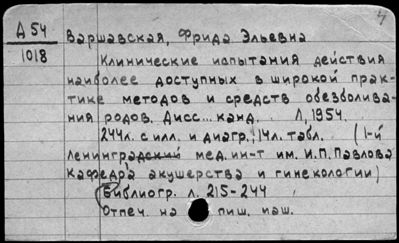 А 54
1018
Варшавская, Фрида Эльевна
Клинические испытания действия
наиболее доступных в широкой прак-
тике методов и средств обезболива-
ния родов. Дисс... канд. Л, 1954.
244л. с илл. и диагр.; 14л. табл. (1-й
Ленинградский мед. ин-т им. И.П. Павлова
Кафедра акушерства и гинекологии)
Библиогр. л. 215-244
Отпеч. на пиш. маш.